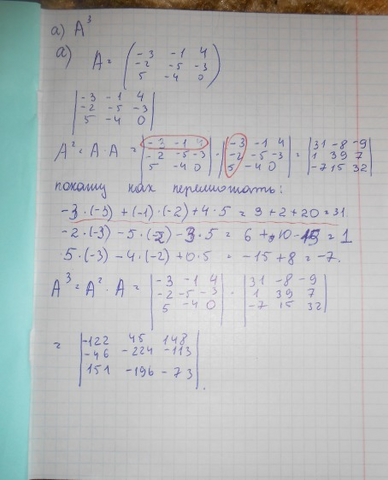 а) A³
а) A = ( -3 -1 4
-2 -5 -3
5 -4 0 )
| -3 -1 4 |
| -2 -5 -3 |
| 5 -4 0 |
A² = A · A = | -3 -1 4 | · | -3 -1 4 | = | 31 -8 -9 |
| -2 -5 -3 | | -2 -5 -3 | | 1 39 7 |
| 5 -4 0 | | 5 -4 0 | | -7 15 32 |
покажу как перемножать:
-3·(-3) + (-1)·(-2) + 4·5 = 9 + 2 + 20 = 31.
-2·(-3) - 5·(-2) - 3·5 = 6 + 10 - 15 = 1
5·(-3) - 4·(-2) + 0·5 = -15 + 8 = -7.
A³ = A² · A = | -3 -1 4 | · | 31 -8 -9 |
| -2 -5 -3 | | 1 39 7 |
| 5 -4 0 | | -7 15 32 |
= | -122 45 148 |
| -46 -224 -113 |
| 151 -196 -73 | .